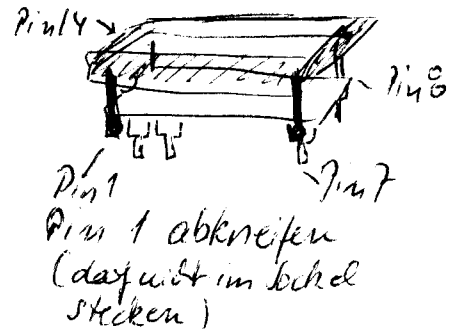 Pin 14
Pin 8
Pin 1
Pin 7
Pin 1 abkneifen
(darf nicht im Sockel
stecken)